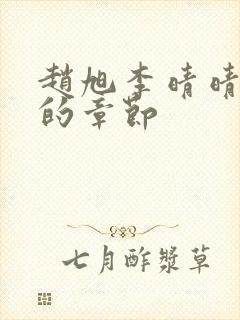 趙旭李晴晴
的章節
七月酢漿草